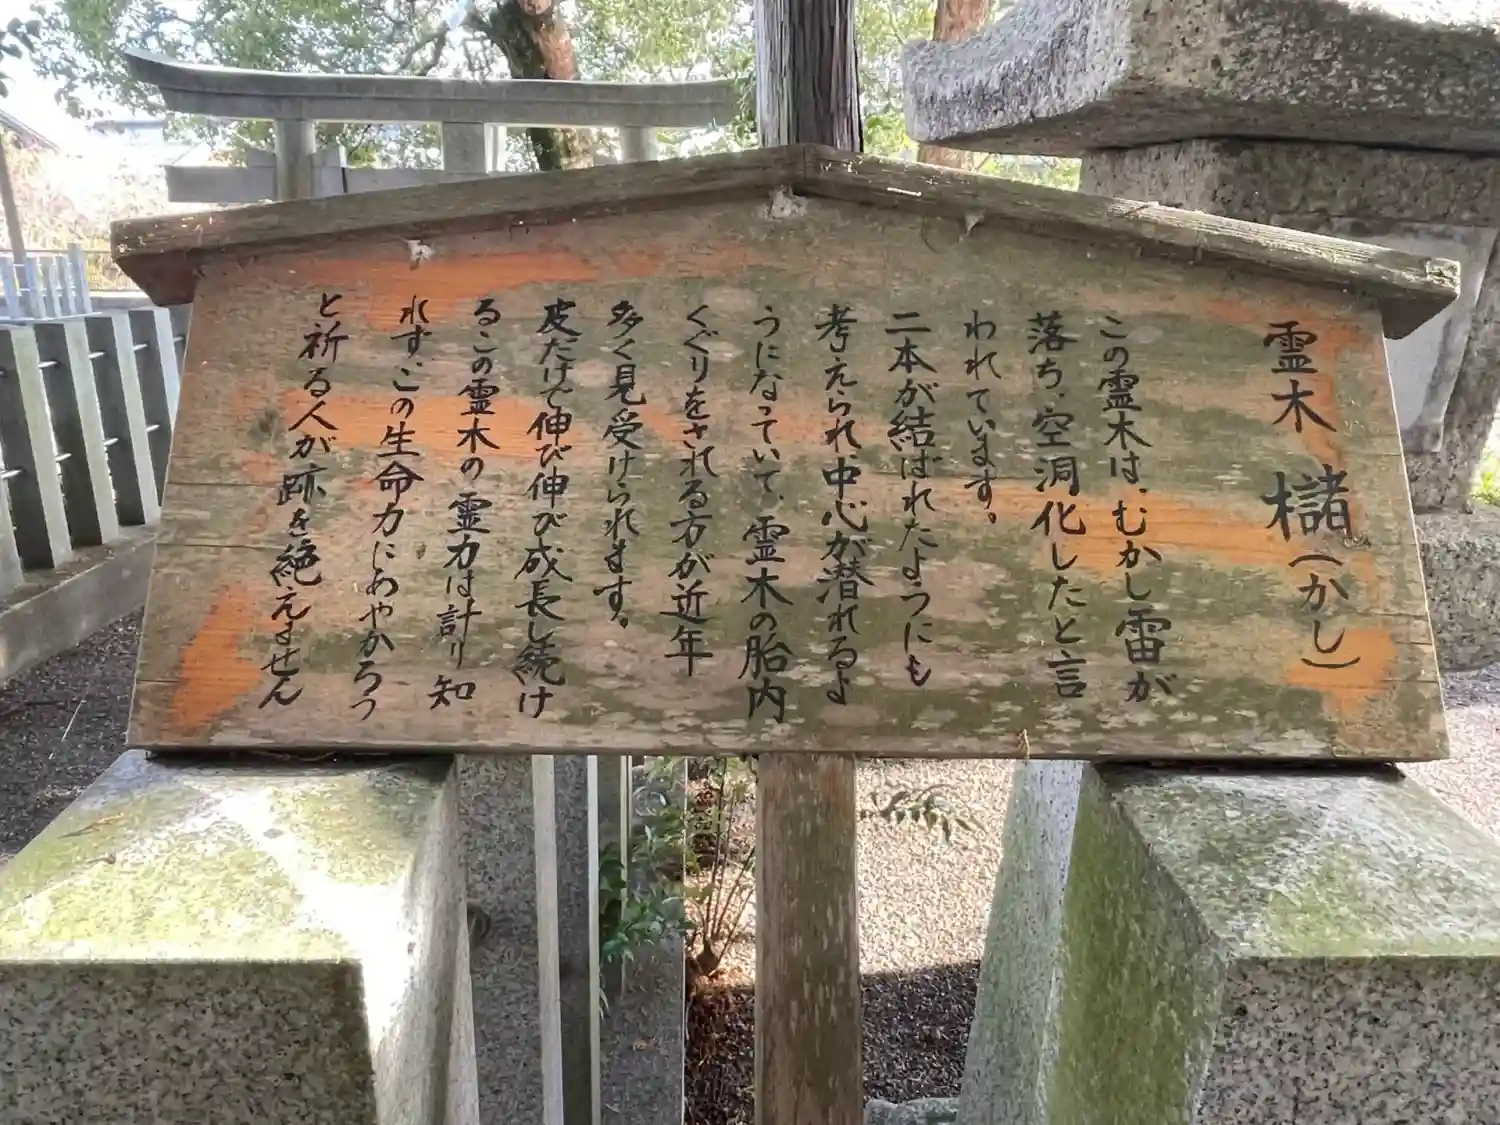 霊木 櫧（かし）
この霊木は、むかし雷が
落ち、空洞化したと言
われています。
二本が結ばれたようにも
考えられ、中心が潜れるよ
うになっていて、霊木の胎内
くぐりをされる方が近年
多く見受けられます。
皮だけで伸び伸び成長し続け
るこの霊木の霊力は計り知
れず、この生命力にあやかろう
と祈る人が跡を絶えません